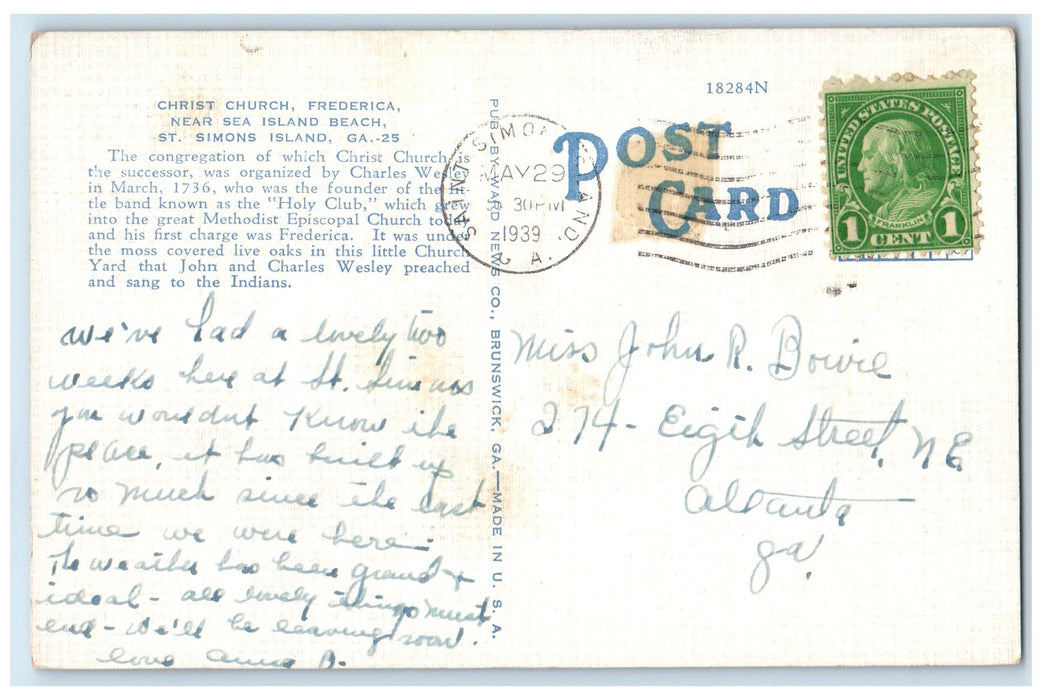 18284N
CHRIST CHURCH, FREDERICA,
NEAR SEA ISLAND BEACH,
ST. SIMONS ISLAND, GA.-25
The congregation of which Christ Church is
the successor, was organized by Charles Wesley
in March, 1736, who was the founder of the lit-
tle band known as the "Holy Club," which grew
into the great Methodist Episcopal Church today
and his first charge was Frederica. It was under
the moss covered live oaks in this little Church
Yard that John and Charles Wesley preached
and sang to the Indians.
we've had a lovely two
weeks here at St. Simons
you wouldnt know the
place, it has built up
so much since the last
time we were here-
The weather has been grand +
ideal - all lovely things must
end - we'll be leaving soon.
love Anna B.
PUB. BY WARD NEWS CO., BRUNSWICK, GA.—MADE IN U. S. A.
SAINT SIMONS ISLAND,
MAY 29
30 PM
1939
GA.
POST
CARD
UNITED STATES POSTAGE
FRANKLIN
1 CENT 1
Miss John R. Bowie
274 - Eigth Street, N E
Atlanta
Ga.